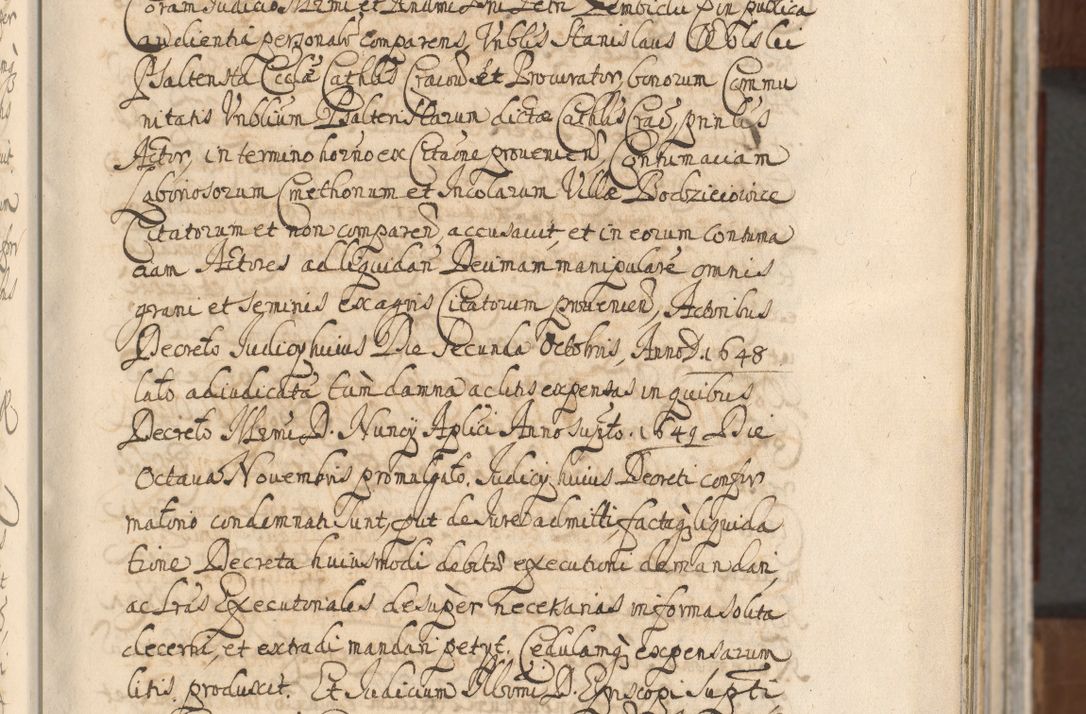 Coram Judicio Illmi et Rndmi Dni Petri Gembicki Epi in publica
audientia personalr comparens Vnblis Stanislaus Wolski
Psaltensta Ecclae Cathlis Cracoun et Procurator bonorum Commu
nitatis Vnblium Psaltenstarum dictae Cathlis Crac, pnntis
Actor, in termino horno ex Citatne prouenien, Contumaciam
Laboriosorum Cmethonum et Incolarum Villae Bodzieiowice
Citatorum et non comparen, accusauit, et in eorum contuma
ciam Actores ad liquidan Decimam manipulare omnis
grani et seminis ex agris Citatorum prouenien, Actoribus
Decreto Judicij huius Die Secunda Octobris, Anno D. 1648
lato adiudicata tum damna ac litis expensas in quibus
Decreto Illmi D. Nuncij Aplici Anno supto. 1649 Die
Octaua Nouembris promulgato. Judicij huius Decreti confir
matorio condemnati sunt, put de Jure admitti, factaq liquida
tione Decreta huiusmodi debite executioni demandari,
ac Lras Executoriales desuper necessarias in forma solita
decerni, et extradi mandari petijt. Cedulamq expensarum
litis, produxit. Et Judicium Illmi D. Episcopi supti,